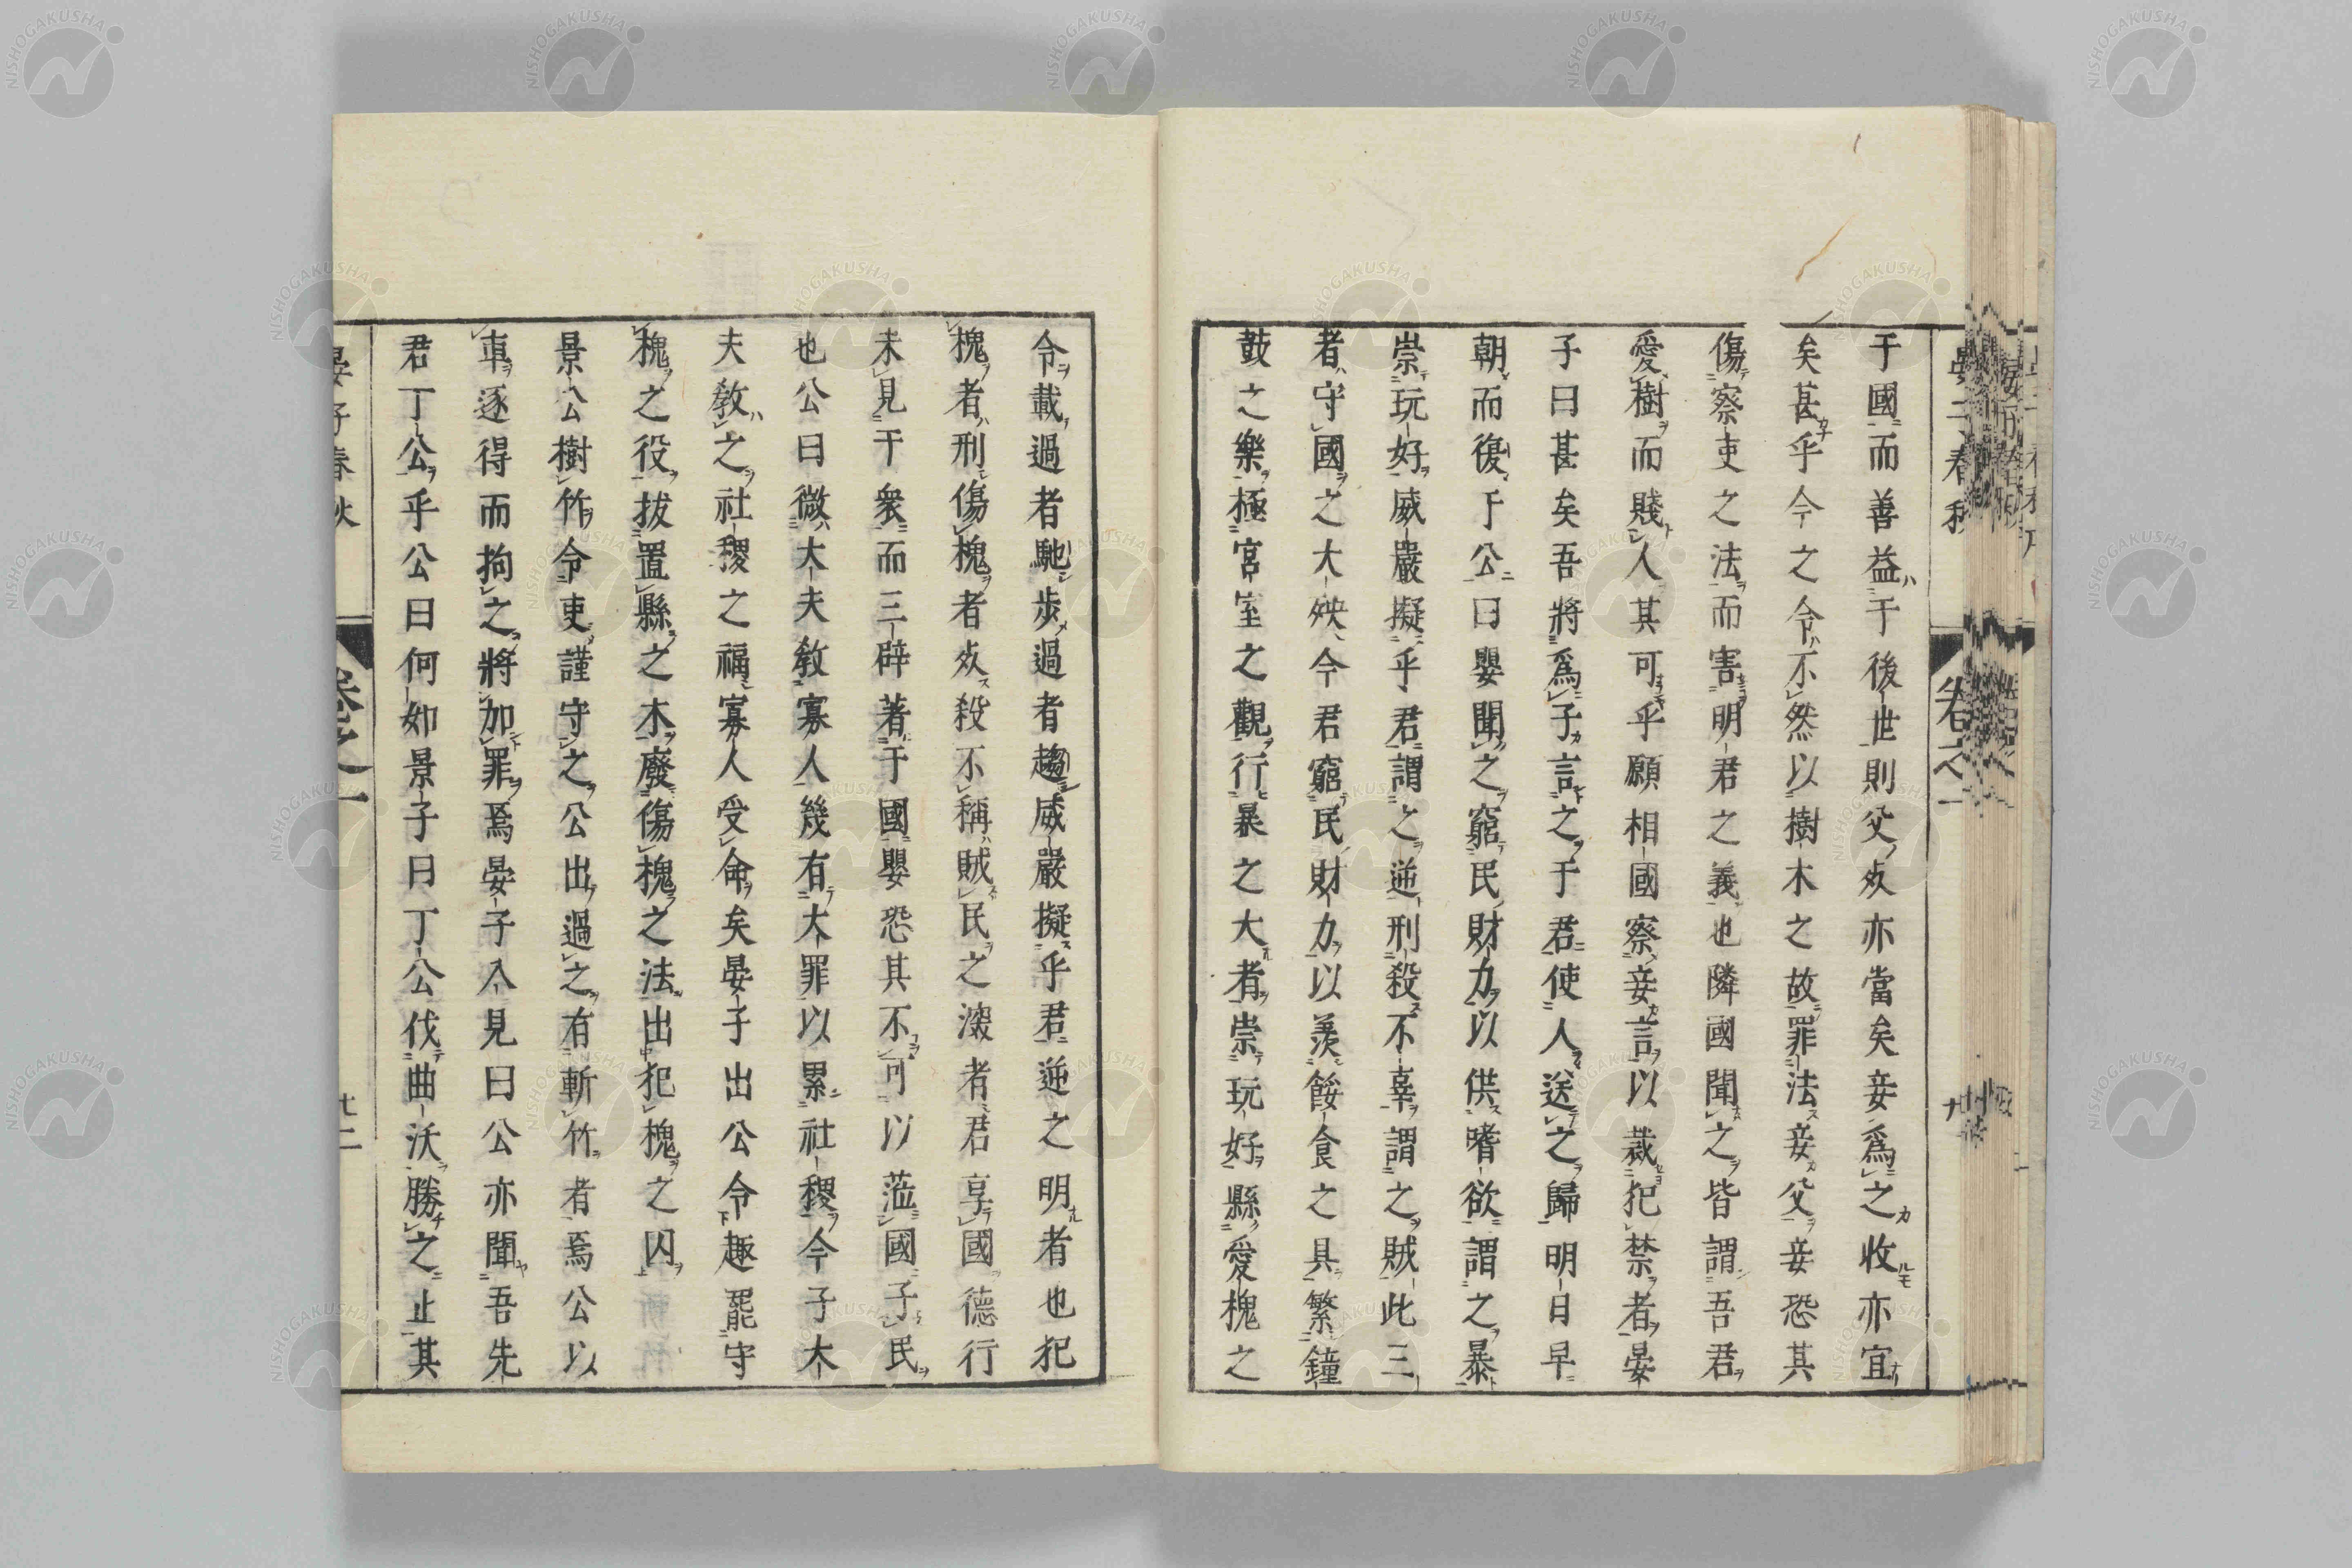 于國而善益于後世則父𣦸亦當矣妾爲之收亦宜
矣甚乎今之令不然以樹木之故罪法妾父妾恐其
傷察吏之法而害明君之義也隣國聞之皆謂吾君
愛樹而賤人其可乎願相國察妾言以裁犯禁者晏
子曰甚矣吾將爲子言之于君使人送之歸明日早
朝而復于公曰嬰聞之窮民財力以供嗜欲謂之暴
崇玩好威嚴擬乎君謂之逆刑殺不辜謂之賊此三
者守國之大殃今君窮民財力以羨餒食之具繁鐘
鼓之樂極宮室之觀行暴之大者崇玩好縣愛槐之
令載過者馳步過者趨威嚴擬乎君逆之明者也犯
槐者刑傷槐者𣦸殺不稱賊民之深者君享國德行
未見于衆而三辟著于國嬰恐其不可以蒞國子民
也公曰微大夫教寡人幾有大罪以累社稷今子大
夫教之社稷之福寡人受命矣晏子出公令趣罷守
槐之役拔置縣之木廢傷槐之法出犯槐之囚
景公樹竹令吏謹守之公出過之有斬竹者焉公以
車逐得而拘之將加罪焉晏子入見曰公亦聞吾先
君丁公乎公曰何如景子曰丁公伐曲沃勝之止其
晏子春秋
卷之一
NISHOGAKUSHA